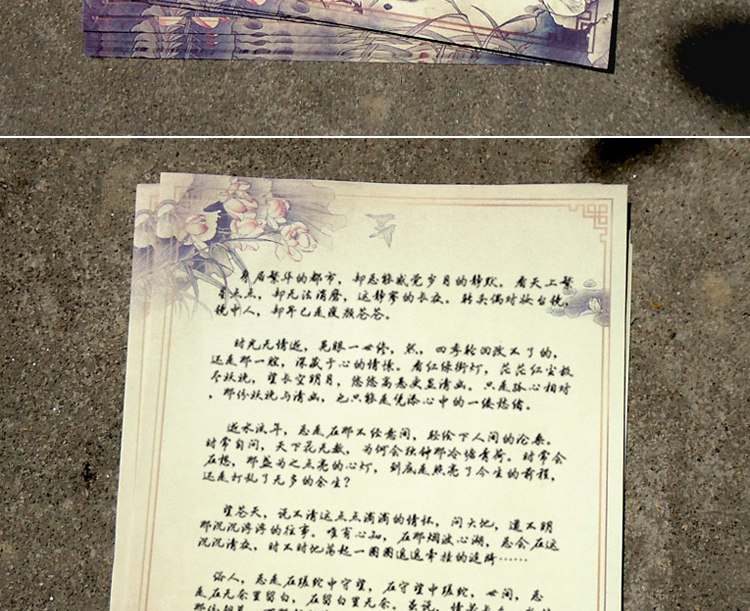 身居繁华的都市，却总能感觉岁月的静默。看天上繁
星点点，却无法消磨，这静寂的长夜。转头偶对妆台镜，
镜中人，却早已是孤颜苍苍。
时光无情逝，晃眼一世终，然，四季轮回改不了的，
还是那一腔，深藏于心的情怀。看红绿街灯，茫茫红尘数
尽妖娆，望长空明月，悠悠高悬更显清幽。只是孤心相对
，那份妖娆与清幽，也只能是凭添心中的一缕愁绪。
逝水流年，总是在那不经意间，轻绘下人间的沧桑。
时常自问，天下花无数，为何会独钟那冷塘青荷。时常会
在想，那盏为之点亮的心灯，到底是照亮了今生的前程，
还是打乱了无多的余生？
望苍天，说不清这点点滴滴的情怀，问大地，道不明
那沉沉浮浮的往事。唯有心知，在那烟波心湖，总会在这
沉沉清夜，时不时地荡起一圈圈追追牵挂的涟漪……
俗人，总是在蹉跎中守望，在守望中蹉跎，世间，总
是在无奈里留白，在留白里无奈。虽说，情若长